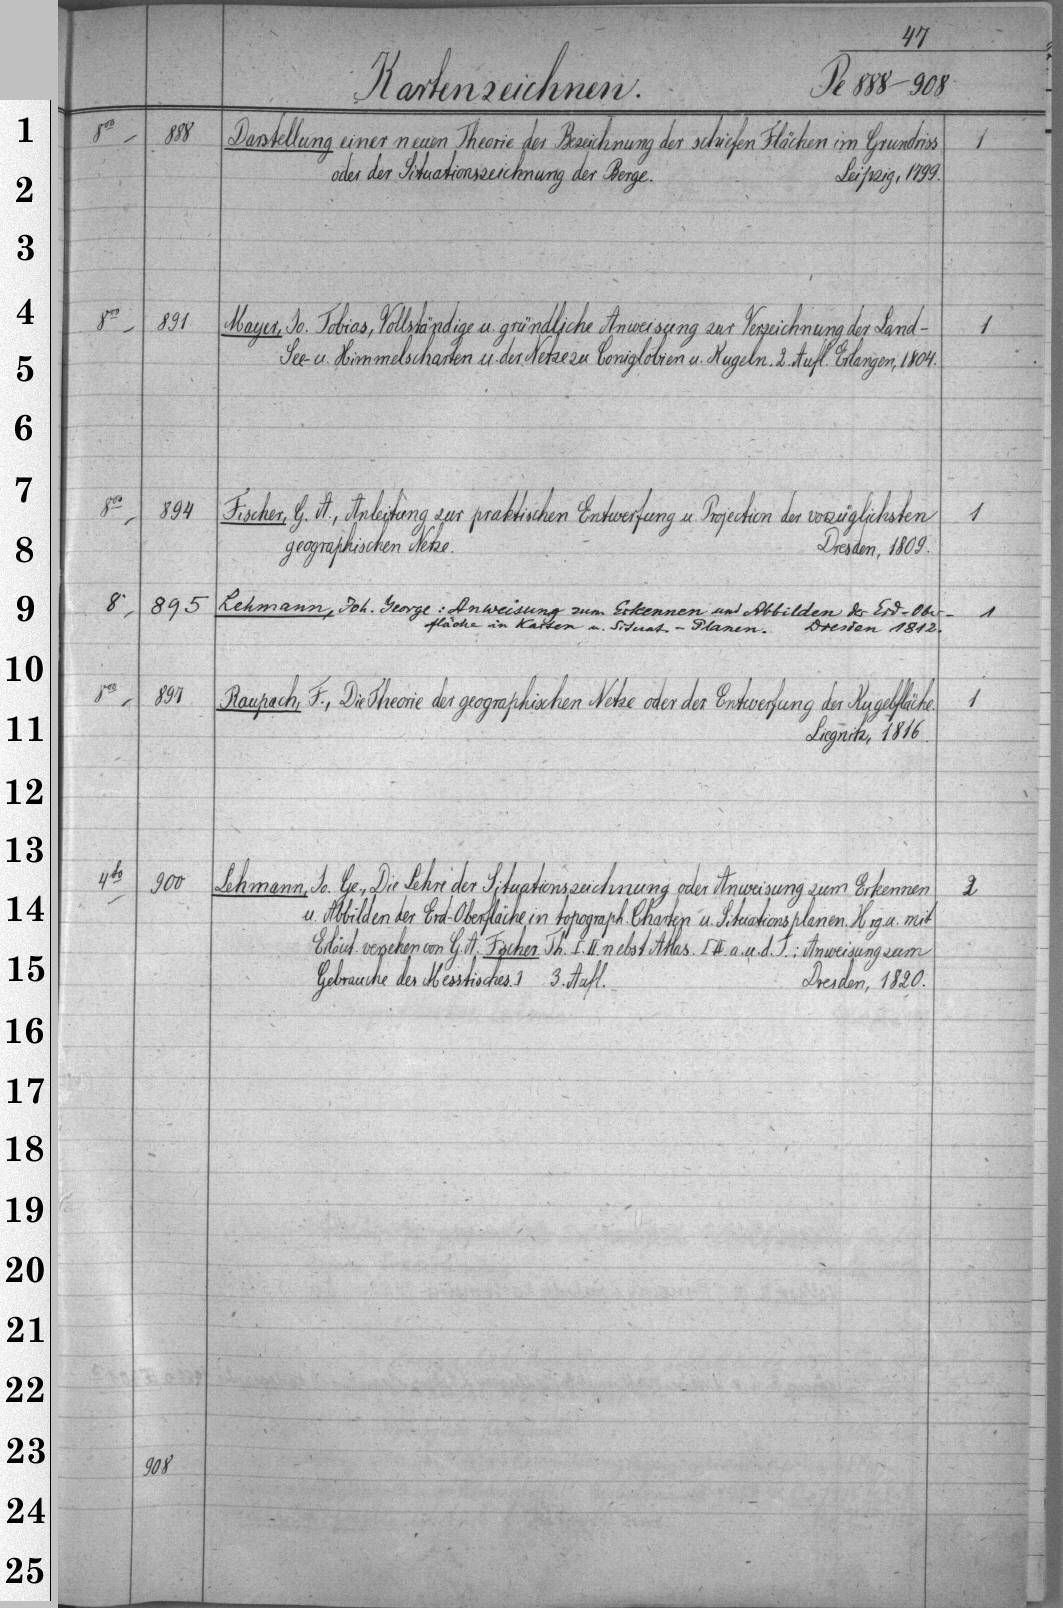 47
Kartenzeichnen. Pe 888-908
1
8vo 888 Darstellung einer neuen Theorie der Bezeichnung der schiefen Flächen im Grundriss 1
2
oder der Situationszeichnung der Berge. Leipzig, 1799.
3
4
8vo 891 Mayer, Jo. Tobias, Vollständige u. gründliche Anweisung zur Verzeichnung der Land- 1
5
See- u. Himmelscharten u. der Netze zu Coniglobien u. Kugeln. 2. Aufl. Erlangen, 1804.
6
7
8vo 894 Fischer, G. A., Anleitung zur praktischen Entwerfung u. Projection der vorzüglichsten 1
8
geographischen Netze. Dresden, 1809.
9
8° 895 Lehmann, Joh. George: Anweisung zum Erkennen und Abbilden der Erd-Ober- 1
fläche in Karten u. Situat.-Planen. Dresden 1812.
10
8vo 897 Raupach, F., Die Theorie der geographischen Netze oder der Entwerfung der Kugelfläche. 1
11
Liegnitz, 1816.
12
13
4to 900 Lehmann, Jo. Ge., Die Lehre der Situationszeichnung oder Anweisung zum Erkennen 2
14
u. Abbilden der Erd-Oberfläche in topograph. Charten u. Situationsplanen. Hrg u. mit
Erläut. versehen von G. A. Fischer. Th. I. II. nebst Atlas. I II a. u. d. T.: Anweisung zum
15
Gebrauche des Messtisches.] 3. Aufl. Dresden, 1820.
16
17
18
19
20
21
22
23
908
24
25